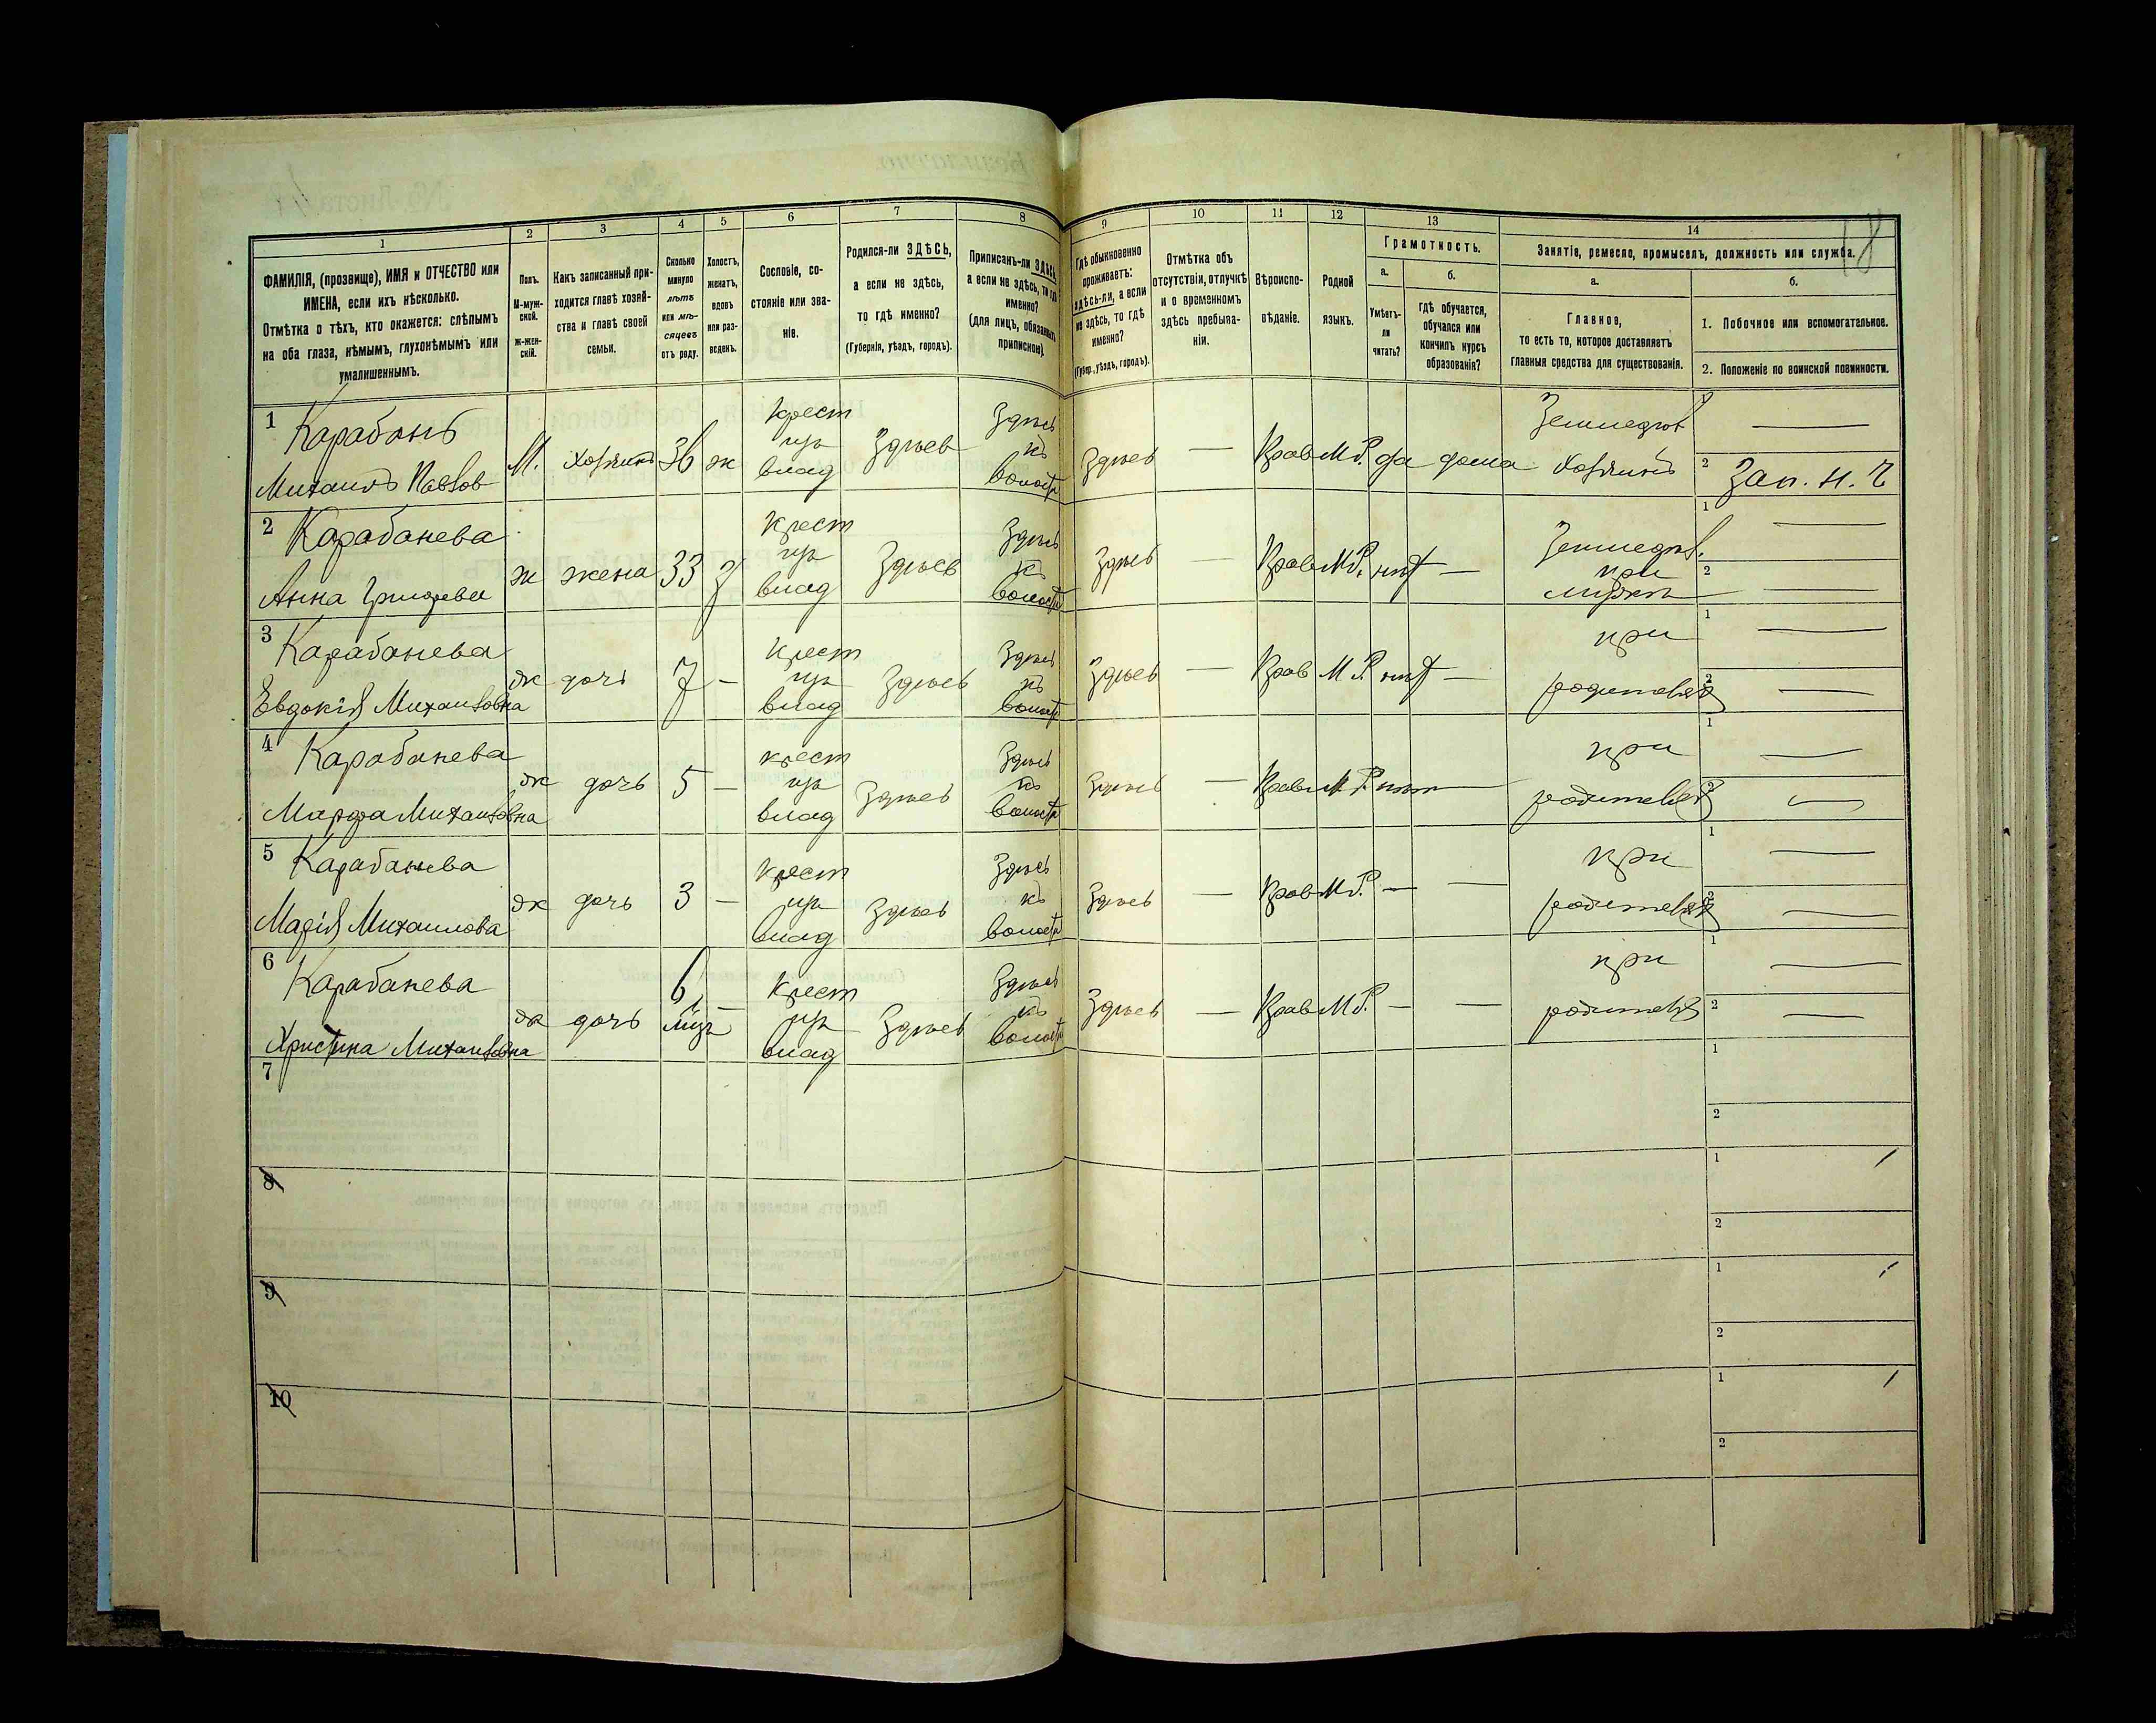 18
1 2 3 4 5 6 7 8 9 10 11 12 13 14
ФАМИЛІЯ, (прозвище), ИМЯ и ОТЧЕСТВО или
ИМЕНА, если ихъ нѣсколько.
Отмѣтка о тѣхъ, кто окажется: слѣпымъ
на оба глаза, нѣмымъ, глухонѣмымъ или
умалишеннымъ.
Полъ.
М-муж-
ской.
Ж-жен-
скій.
Какъ записанный при-
ходится главѣ хозяй-
ства и главѣ своей
семьи.
Сколько
минуло
лѣтъ
или мѣ-
сяцевъ
отъ роду.
Холостъ,
женатъ,
вдовъ
или раз-
веденъ.
Сословіе, со-
стояніе или зва-
ніе.
Родился-ли ЗДѢСЬ,
а если не здѣсь,
то гдѣ именно?
(Губернія, уѣздъ, городъ).
Приписанъ-ли ЗДѢСЬ,
а если не здѣсь, то гдѣ
именно?
(для лицъ, обязанныхъ
припискою).
Гдѣ обыкновенно
проживаетъ:
здѣсь-ли, а если
не здѣсь, то гдѣ
именно?
(Губер., уѣздъ, городъ).
Отмѣтка объ
отсутствіи, отлучкѣ
и о временномъ
здѣсь пребыва-
ніи.
Вѣроиспо-
вѣданіе.
Родной
языкъ.
Грамотность.
а.
Умѣетъ-
ли
читать?
б.
гдѣ обучается,
обучался или
кончилъ курсъ
образованія?
Занятіе, ремесло, промыселъ, должность или служба.
а.
Главное,
то есть то, которое доставляетъ
главныя средства для существованія.
б.
1. Побочное или вспомогательное.
2. Положеніе по воинской повинности.
1 Карабань крест Здѣсь Земледѣл 1 —
Михаилъ Павлов М. хозяинъ 36 ж изъ влад Здѣсь къ волости Здѣсь — Прав М.Р. да дома хозяинъ 2 Зап. н. ч
2 Карабанева крест Здѣсь Земледѣл. 1 —
Анна ж жена 33 з изъ влад Здѣсь къ волости Здѣсь — Прав М.Р. нѣт — при мужѣ 2 —
3 Карабанева крест Здѣсь при 1 —
Евдокія Михаиловна ж дочь 7 — изъ влад Здѣсь къ волости Здѣсь — Прав М.Р. нѣт — родителях 2 —
4 Карабанева крест Здѣсь при 1 —
Марфа Михаиловна ж дочь 5 — изъ влад Здѣсь къ волости Здѣсь — Прав М.Р. нѣт — родителях 2 —
5 Карабанева крест Здѣсь при 1 —
Марія Михаилова ж дочь 3 — изъ влад Здѣсь къ волости Здѣсь — Прав М.Р. — — родителях 2 —
6 Карабанева 6 крест Здѣсь при 1 —
Христина Михаиловна ж дочь мѣц — изъ влад Здѣсь къ волости Здѣсь — Прав М.Р. — — родителях 2 —
7 1
2
8 1
2
9 1
2
10 1
2